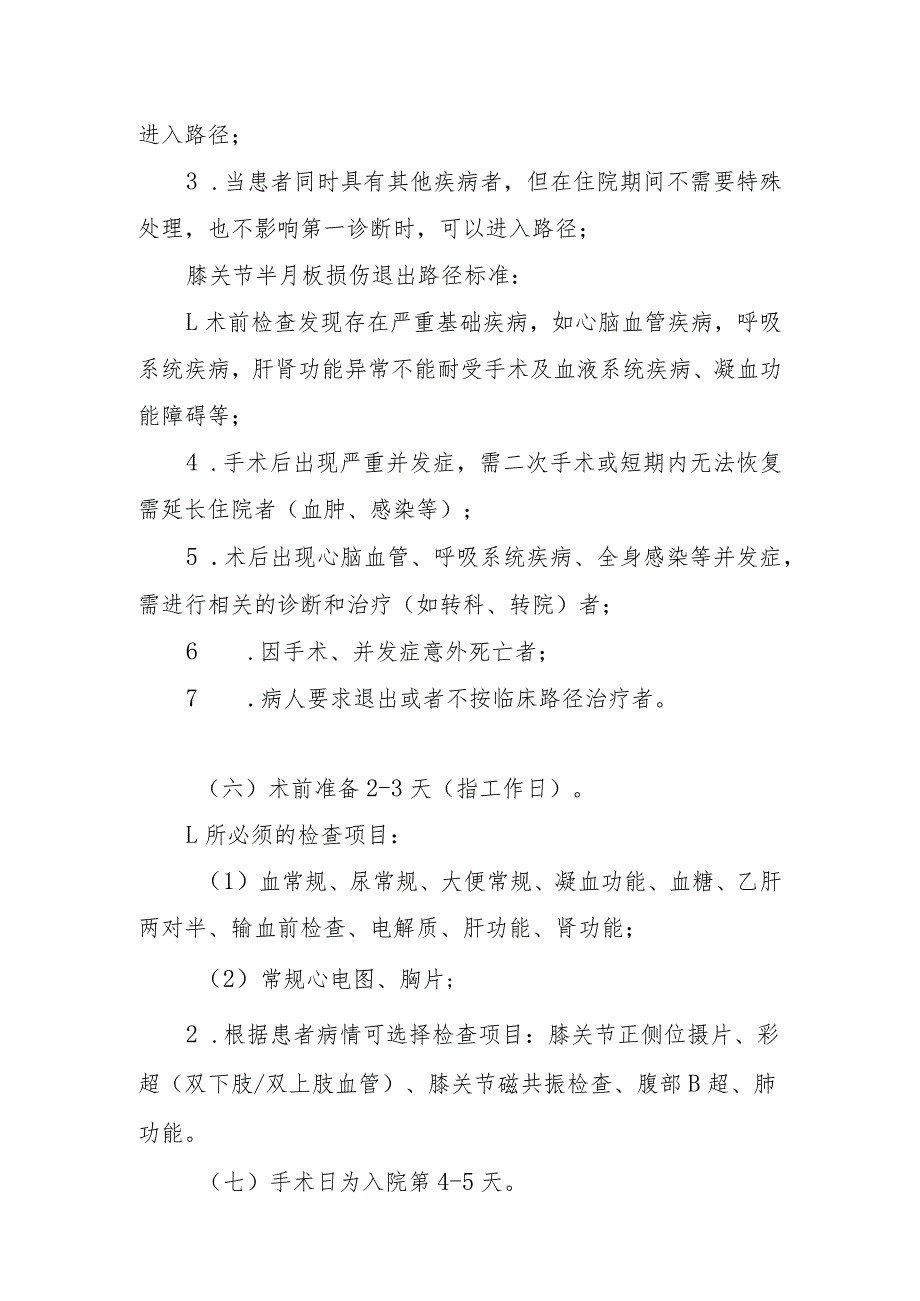 进入路径；
3 .当患者同时具有其他疾病者，但在住院期间不需要特殊
处理，也不影响第一诊断时，可以进入路径；
膝关节半月板损伤退出路径标准：
L术前检查发现存在严重基础疾病，如心脑血管疾病，呼吸
系统疾病，肝肾功能异常不能耐受手术及血液系统疾病、凝血功
能障碍等；
4 .手术后出现严重并发症，需二次手术或短期内无法恢复
需延长住院者（血肿、感染等）；
5 .术后出现心脑血管、呼吸系统疾病、全身感染等并发症，
需进行相关的诊断和治疗（如转科、转院）者；
6 .因手术、并发症意外死亡者；
7 .病人要求退出或者不按临床路径治疗者。
（六）术前准备2-3天（指工作日）。
L所必须的检查项目：
（1）血常规、尿常规、大便常规、凝血功能、血糖、乙肝
两对半、输血前检查、电解质、肝功能、肾功能；
（2）常规心电图、胸片；
2 .根据患者病情可选择检查项目：膝关节正侧位摄片、彩
超（双下肢/双上肢血管）、膝关节磁共振检查、腹部B超、肺
功能。
（七）手术日为入院第4-5天。